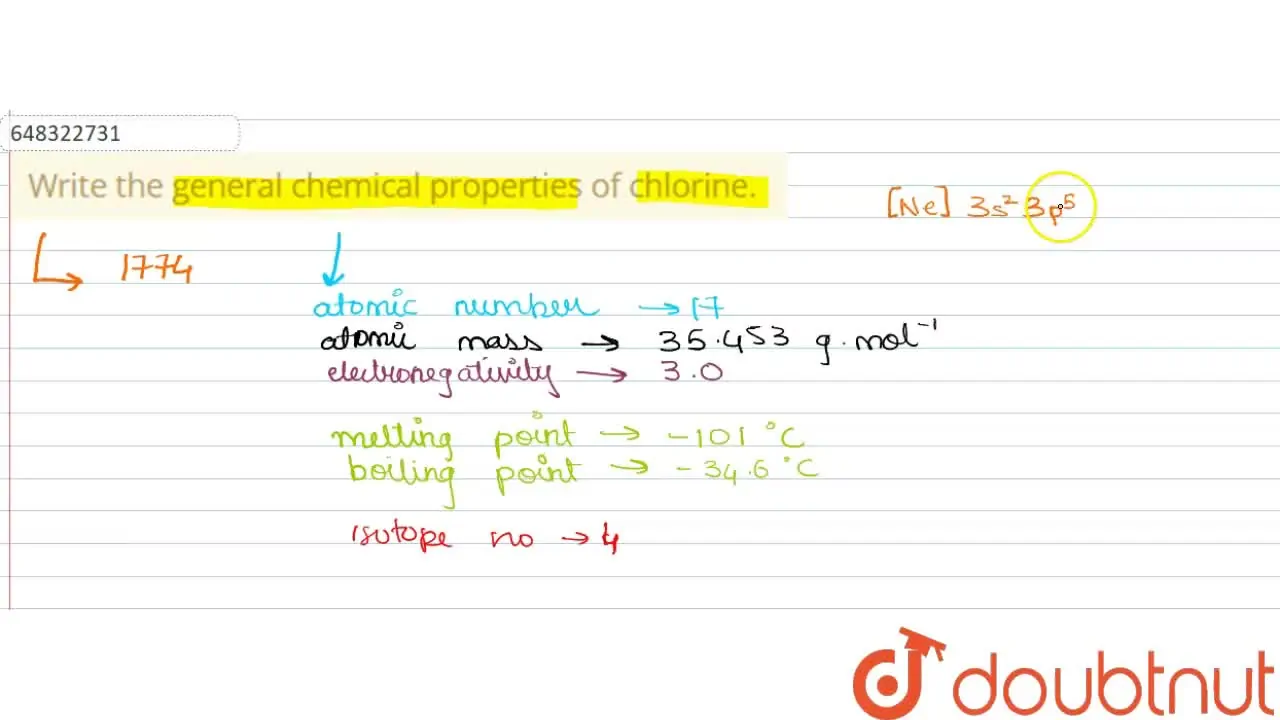 648322731
Write the general chemical properties of chlorine.
[Ne] 3s² 3p⁵
1774
atomic number → 17
atomic mass → 35.453 g.mol⁻¹
electronegativity → 3.0
melting point → -101 °C
boiling point → -34.6 °C
isotope no → 4
doubtnut